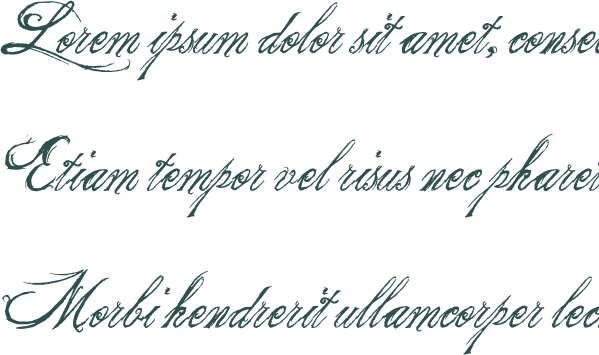 Lorem ipsum dolor sit amet, consec
Etiam tempor vel risus nec pharet
Morbi hendrerit ullamcorper lec